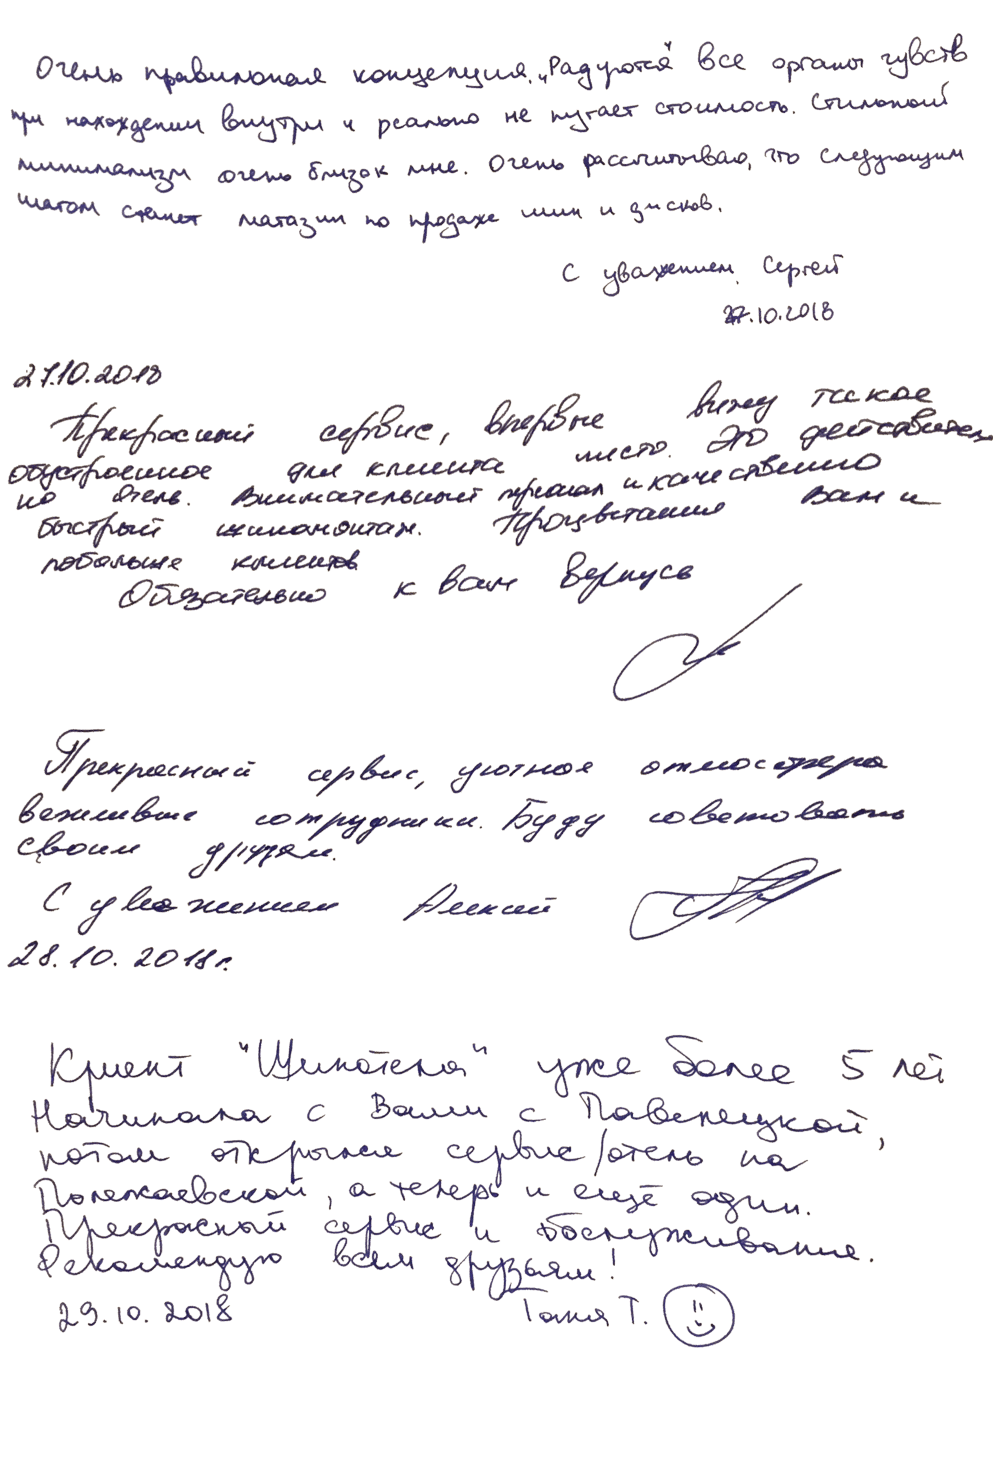 Очень правильная концепция. "Радуются" все органы чувств
при нахождении внутри и реально не пугает стоимость. Стильный
минимализм очень близок мне. Очень рассчитываю, что следующим
шагом станет магазин по продаже шин и дисков.
С уважением, Сергей
27.10.2018
27.10.2018
Прекрасный сервис, впервые вижу такое
обустроенное для клиента место. Это действитель
но отель. Внимательный персонал и качественно
быстрый шиномонтаж. Процветания Вам и
побольше клиентов
Обязательно к вам вернусь
Прекрасный сервис, уютная атмосфера
вежливые сотрудники. Буду советовать
своим друзям.
С уважением Алексей
28.10.2018г.
Клиент "Шинотела" уже более 5 лет
Начинала с Вами с Павелецкой,
потом открылся сервис/отель на
Полежаевской, а теперь и ещё один.
Прекрасный сервис и обслуживание.
Рекомендую всем друзьям!
29.10.2018 Таня Т.